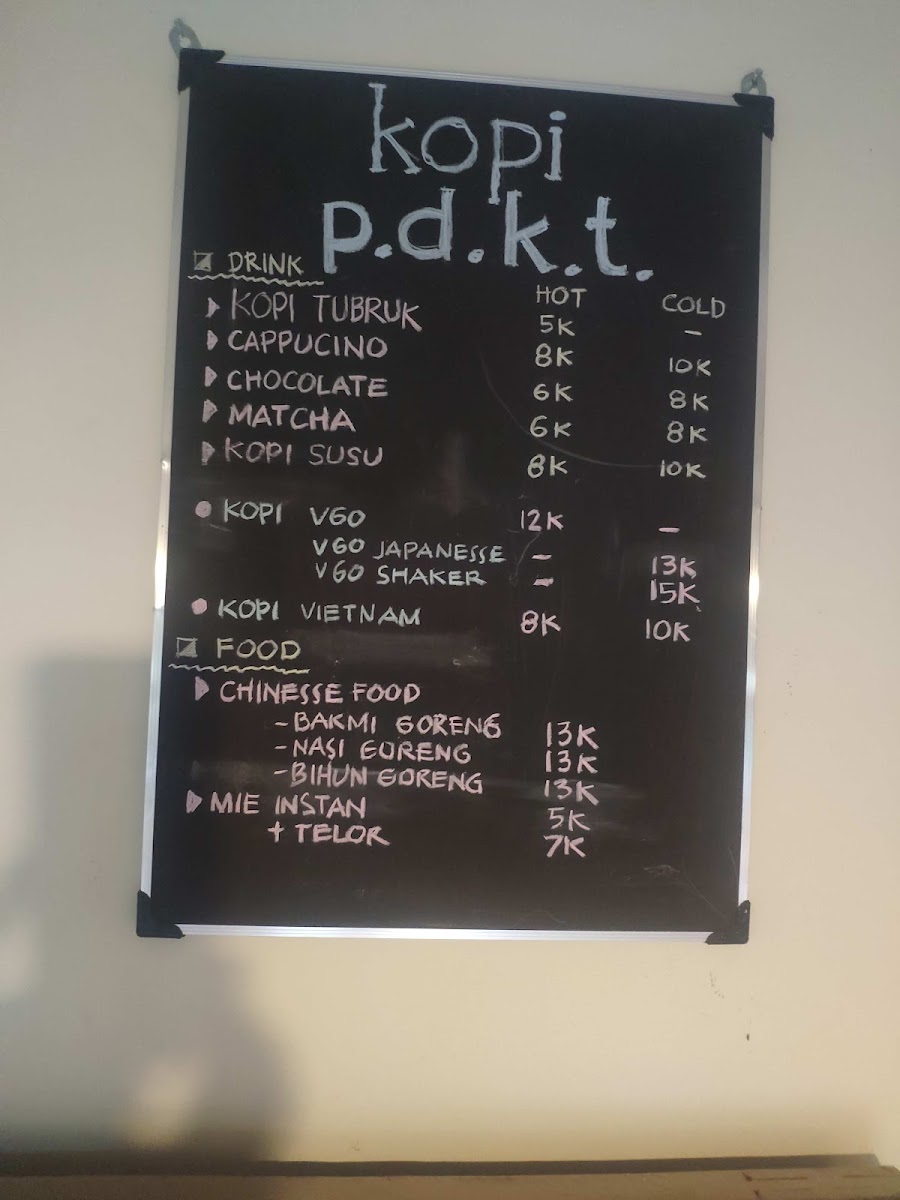 kopi
p.d.k.t.
DRINK HOT COLD
KOPI TUBRUK 5K -
CAPPUCINO 8K 10K
CHOCOLATE 6K 8K
MATCHA 6K 8K
KOPI SUSU 8K 10K
KOPI V60 12K -
V60 JAPANESSE - 13K
V60 SHAKER - 15K
KOPI VIETNAM 8K 10K
FOOD
CHINESSE FOOD
- BAKMI GORENG 13K
- NASI GORENG 13K
- BIHUN GORENG 13K
MIE INSTAN 5K
+ TELOR 7K